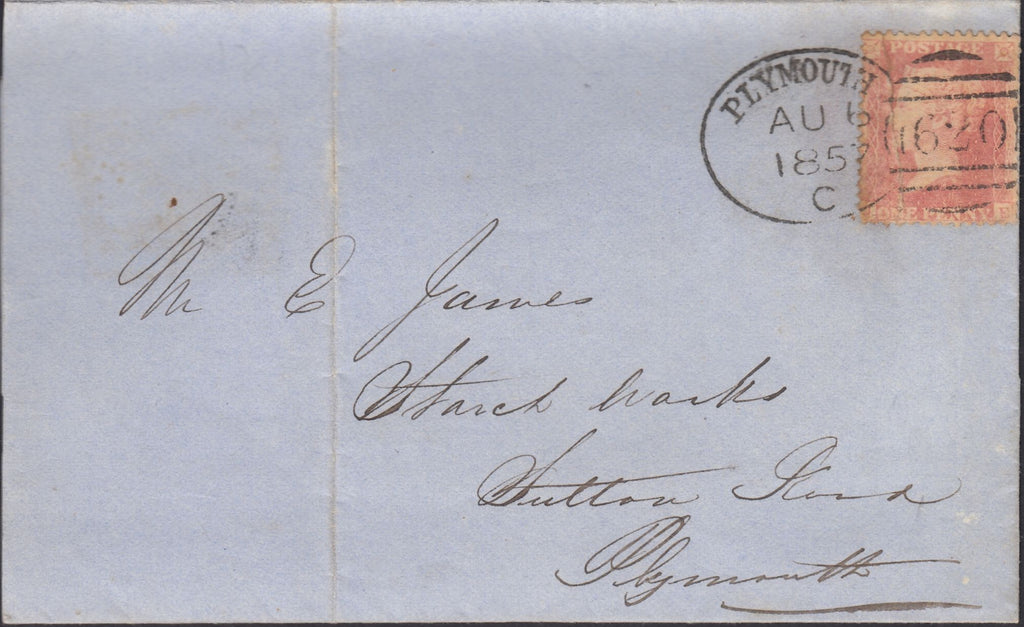 PLYMOUTH
AU 6
1857
C
POSTAGE
620
ONE PENNY
Mr E James
Starch Works
Sutton Road
Plymouth